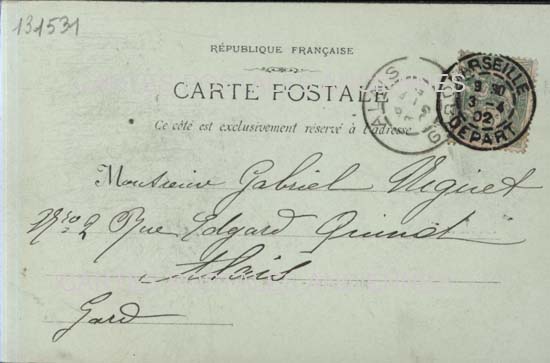 131531
RÉPUBLIQUE FRANÇAISE
CARTE POSTALE
Ce côté est exclusivement réservé à l'adresse
ALAIS
MARSEILLE
3 4
02
DEPART
Monsieur Gabriel Viguet
Nro 2 Rue Edgard Quinet
Alais
Gard